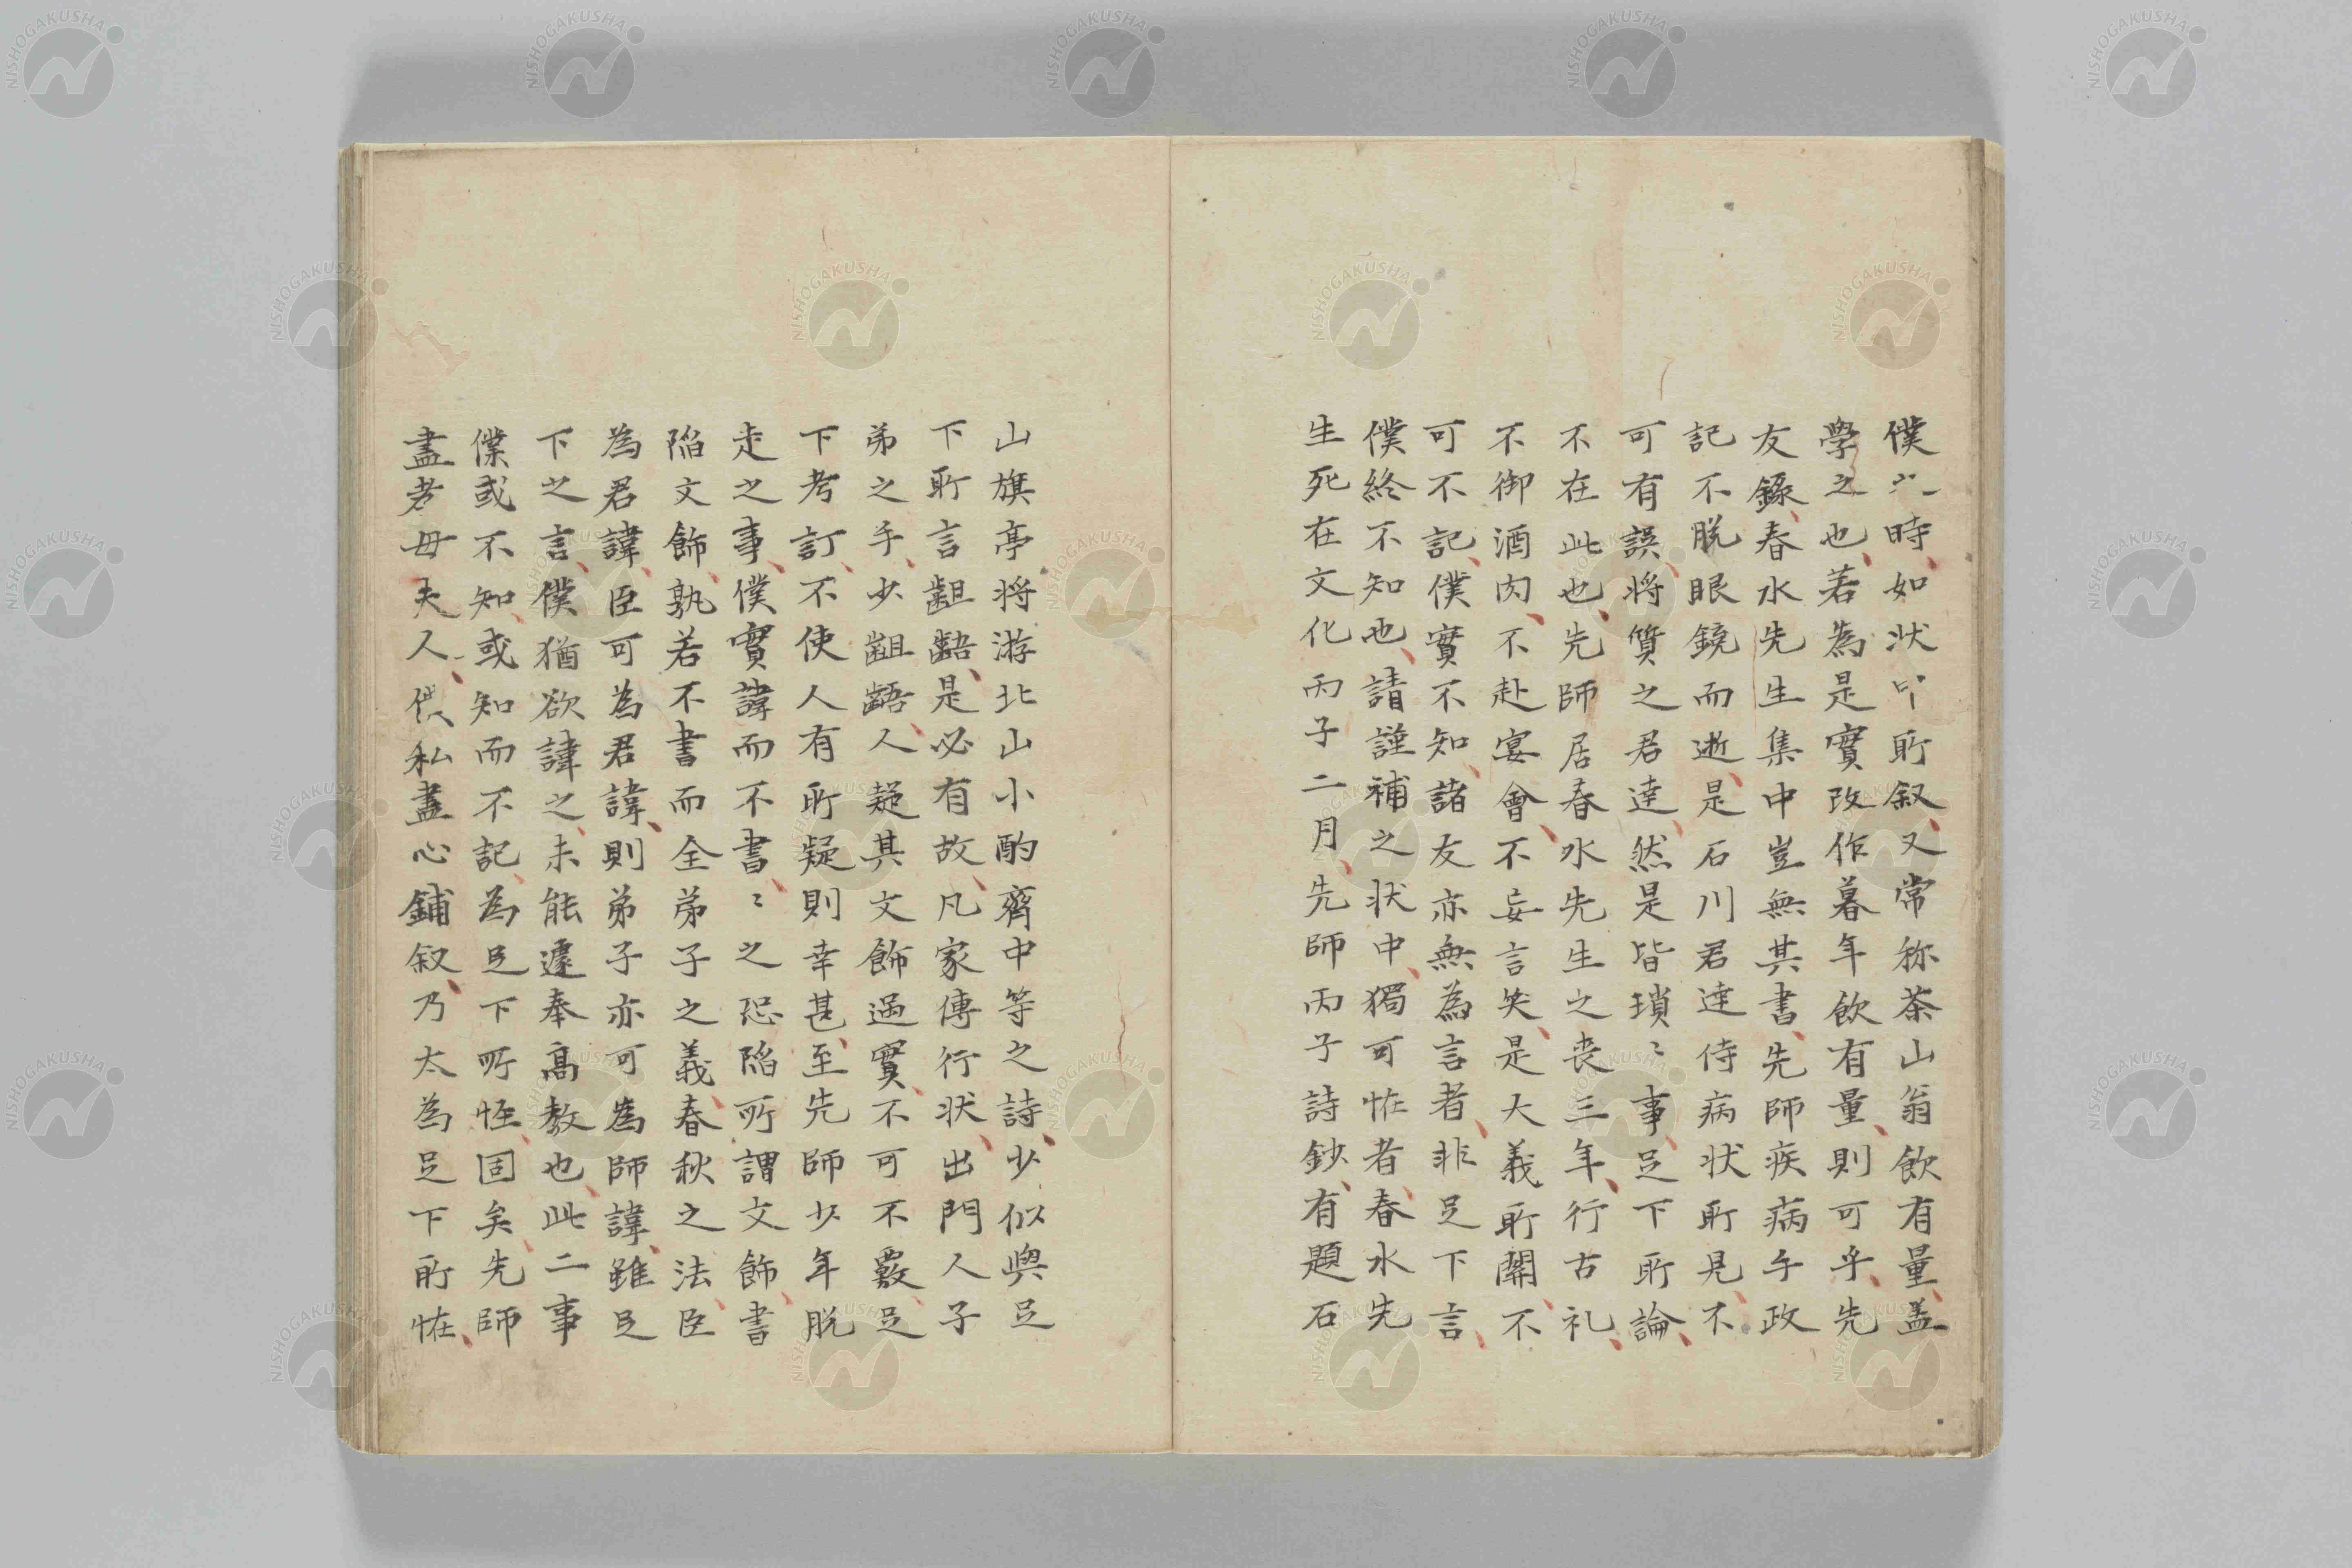 僕 時如状中所叙又常称茶山翁飲有量盖
學之也若為是實改作暮年飲有量則可乎先
友錄春水先生集中豈無其書先師疾病手政
記不脱眼鏡而逝是石川君達侍病状所見不
可有誤将質之君達然是皆瑣〻事足下所論
不在此也先師居春水先生之喪三年行古礼
不御酒肉不赴宴會不妄言笑是大義所關不
可不記僕實不知諸友亦無為言者非足下言
僕終不知也請謹補之状中獨可怪者春水先
生死在文化丙子二月先師丙子詩鈔有題石
山旗亭将游北山小酌齋中等之詩少似與足
下所言齟齬是必有故凡家傳行状出門人子
弟之手少齟齬人疑其文飾過實不可不覈足
下考訂不使人有所疑則幸甚至先師少年脱
走之事僕實諱而不書〻之恐陷所謂文飾書
陷文飾孰若不書而全弟子之義春秋之法臣
為君諱臣可為君諱則弟子亦可為師諱雖足
下之言僕猶欲諱之未能遽奉高教也此二事
僕或不知或知而不記為足下所怪固矣先師
盡孝母夫人 僕私盡心鋪叙乃大為足下所怪
NISHOGAKUSHA